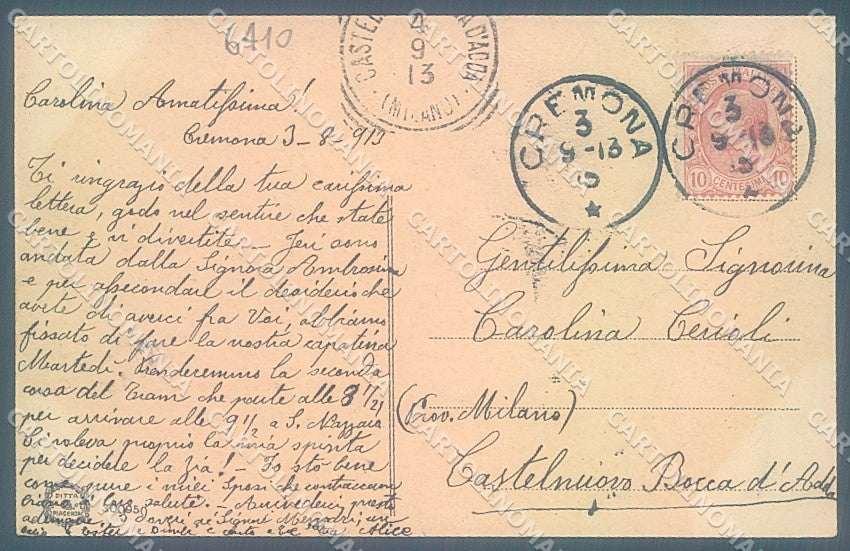 6410
CASTEL D'ADDA
9
13
(MILANO)
CREMONA
3
9-13
CREMONA
3
9-13
10 CENTESIMI 10
Carolina Amatissima!
Cremona 3-8 913
Ti ringrazio della tua carissima
lettera, godo nel sentire che state
bene e vi divertite - Jeri sono
andata dalla Signora Ambrosina
e per assecondare il desiderio che
avete di averci fra Voi, abbiamo
fissato di fare la nostra capatina
Martedì. Prenderemmo la seconda
corsa del Tram che parte alle 8 1/2
per arrivare alle 9 1/2 a S. Nazzaro
Ci voleva proprio la mia spirita
per decidere la Zia! - Io stò bene
come pure i miei Sposi che contraccam
biano i loro saluti. - Arrivederci presto
Alice
Gentilissima Signorina
Carolina Cerioli
(Prov. Milano)
Castelnuovo Bocca d'Adda
DITTA
PIACENZA
500950
CARTOLINOMANIA